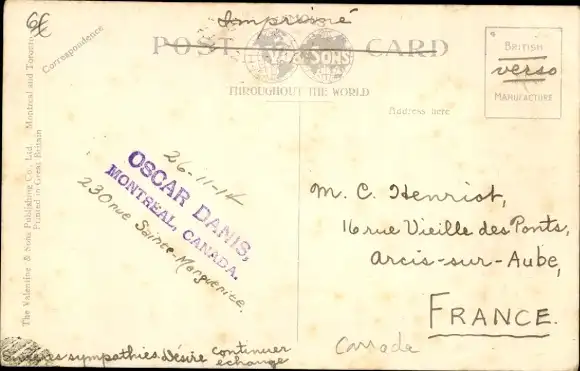 6f
Imprimé
POST CARD
& SONS
THROUGHOUT THE WORLD
BRITISH
verso
MANUFACTURE
Correspondence
Address here
The Valentine & Sons Publishing Co., Ltd. Montreal and Toronto
Printed in Great Britain
26-11-14
OSCAR DANIS,
MONTREAL, CANADA.
230 rue Sainte-Marguerite.
M. C. Henriot,
16 rue Vieille des Ponts,
Arcis-sur-Aube,
FRANCE.
Canada
Sincères sympathies. Désire continuer
échange